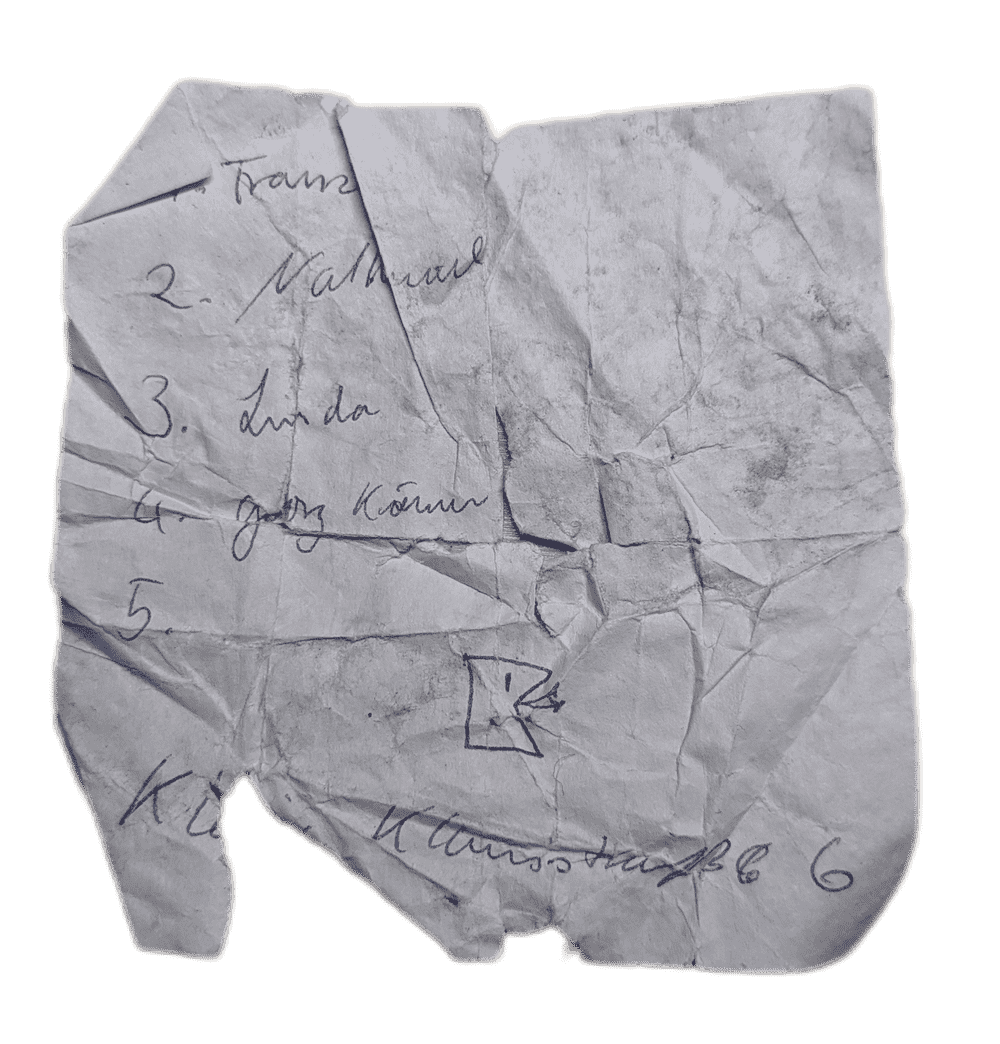 1. Franz
2. Nathanael
3. Linda
4. Georg Körner
5.
Klausstraße 6